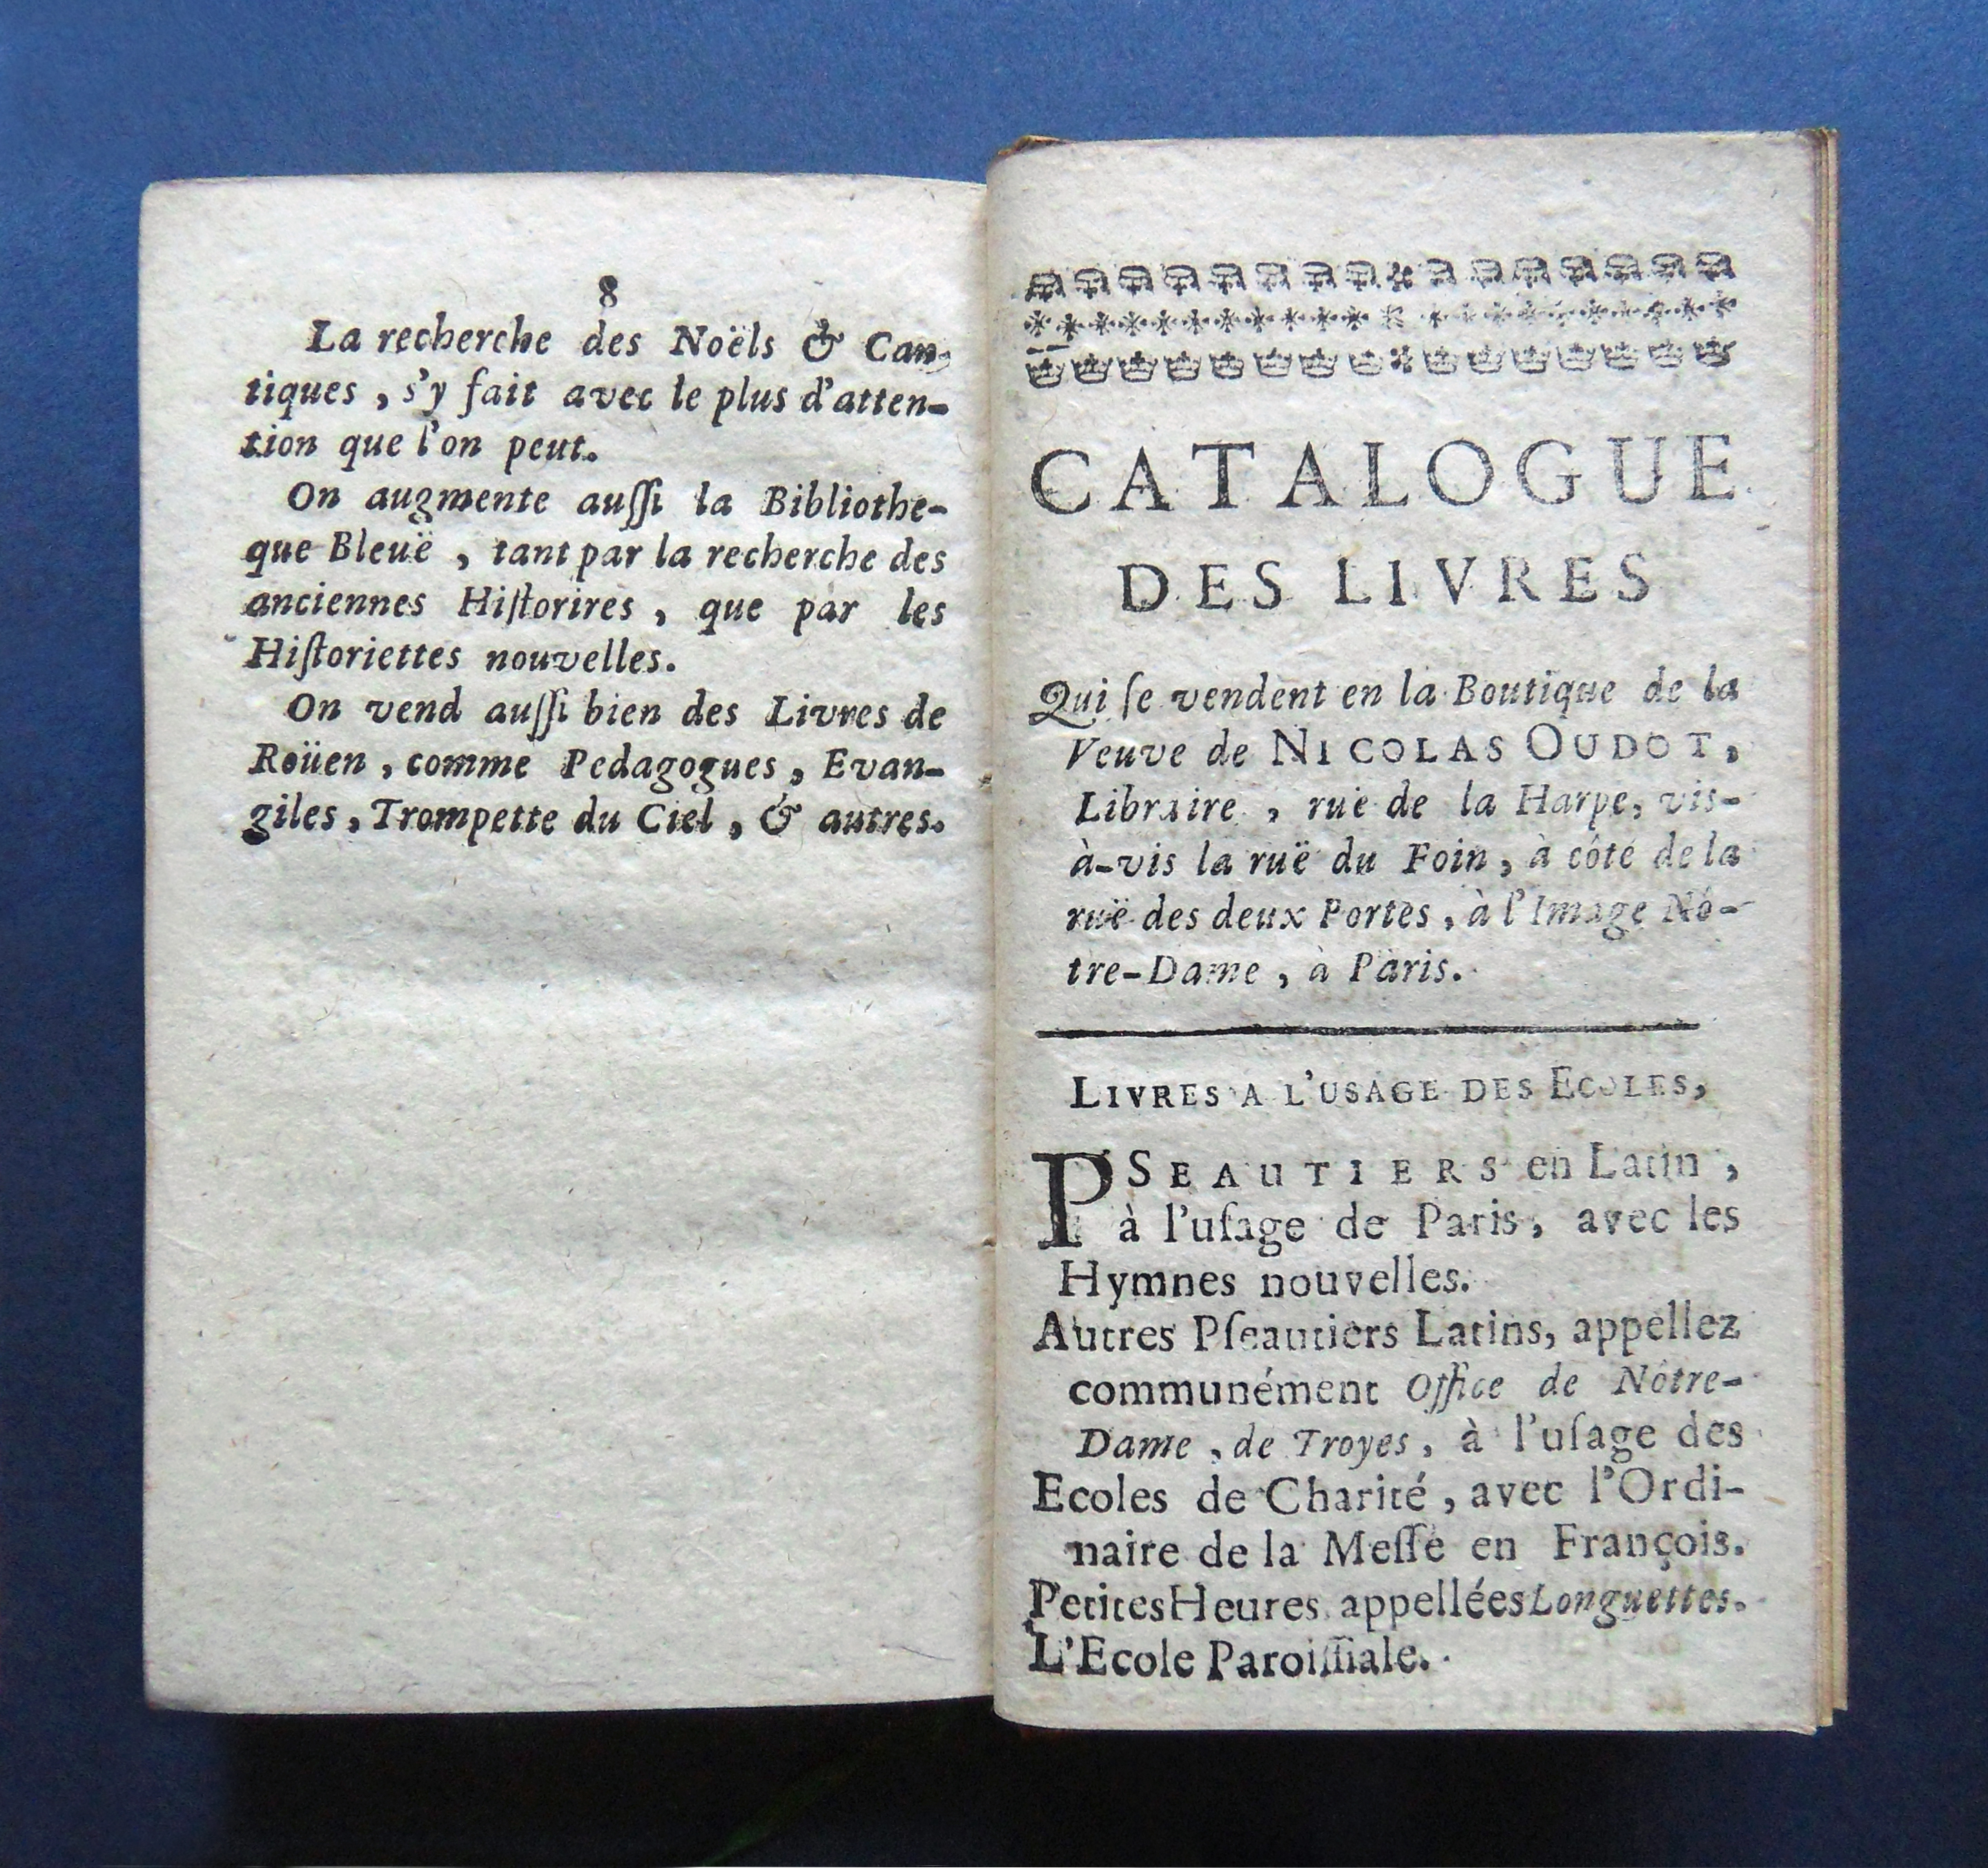 8
La recherche des Noëls & Can-
tiques, s'y fait avec le plus d'atten-
tion que l'on peut.
On augmente auſſi la Bibliothe-
que Bleuë, tant par la recherche des
anciennes Hiſtorires, que par les
Hiſtoriettes nouvelles.
On vend auſſi bien des Livres de
Roüen, comme Pedagogues, Evan-
giles, Trompette du Ciel, & autres.
CATALOGUE
DES LIVRES
Qui ſe vendent en la Boutique de la
Veuve de NICOLAS OUDOT,
Libraire, ruë de la Harpe, vis-
à-vis la ruë du Foin, à côté de la
ruë des deux Portes, à l'Image Nô-
tre-Dame, à Paris.
LIVRES A L'USAGE DES ECOLES,
PSEAUTIERS en Latin,
à l'uſage de Paris, avec les
Hymnes nouvelles.
Autres Pſeautiers Latins, appellez
communément Office de Nôtre-
Dame, de Troyes, à l'uſage des
Ecoles de Charité, avec l'Ordi-
naire de la Meſſe en François.
Petites Heures appellées Longuettes.
L'Ecole Paroiſſiale.